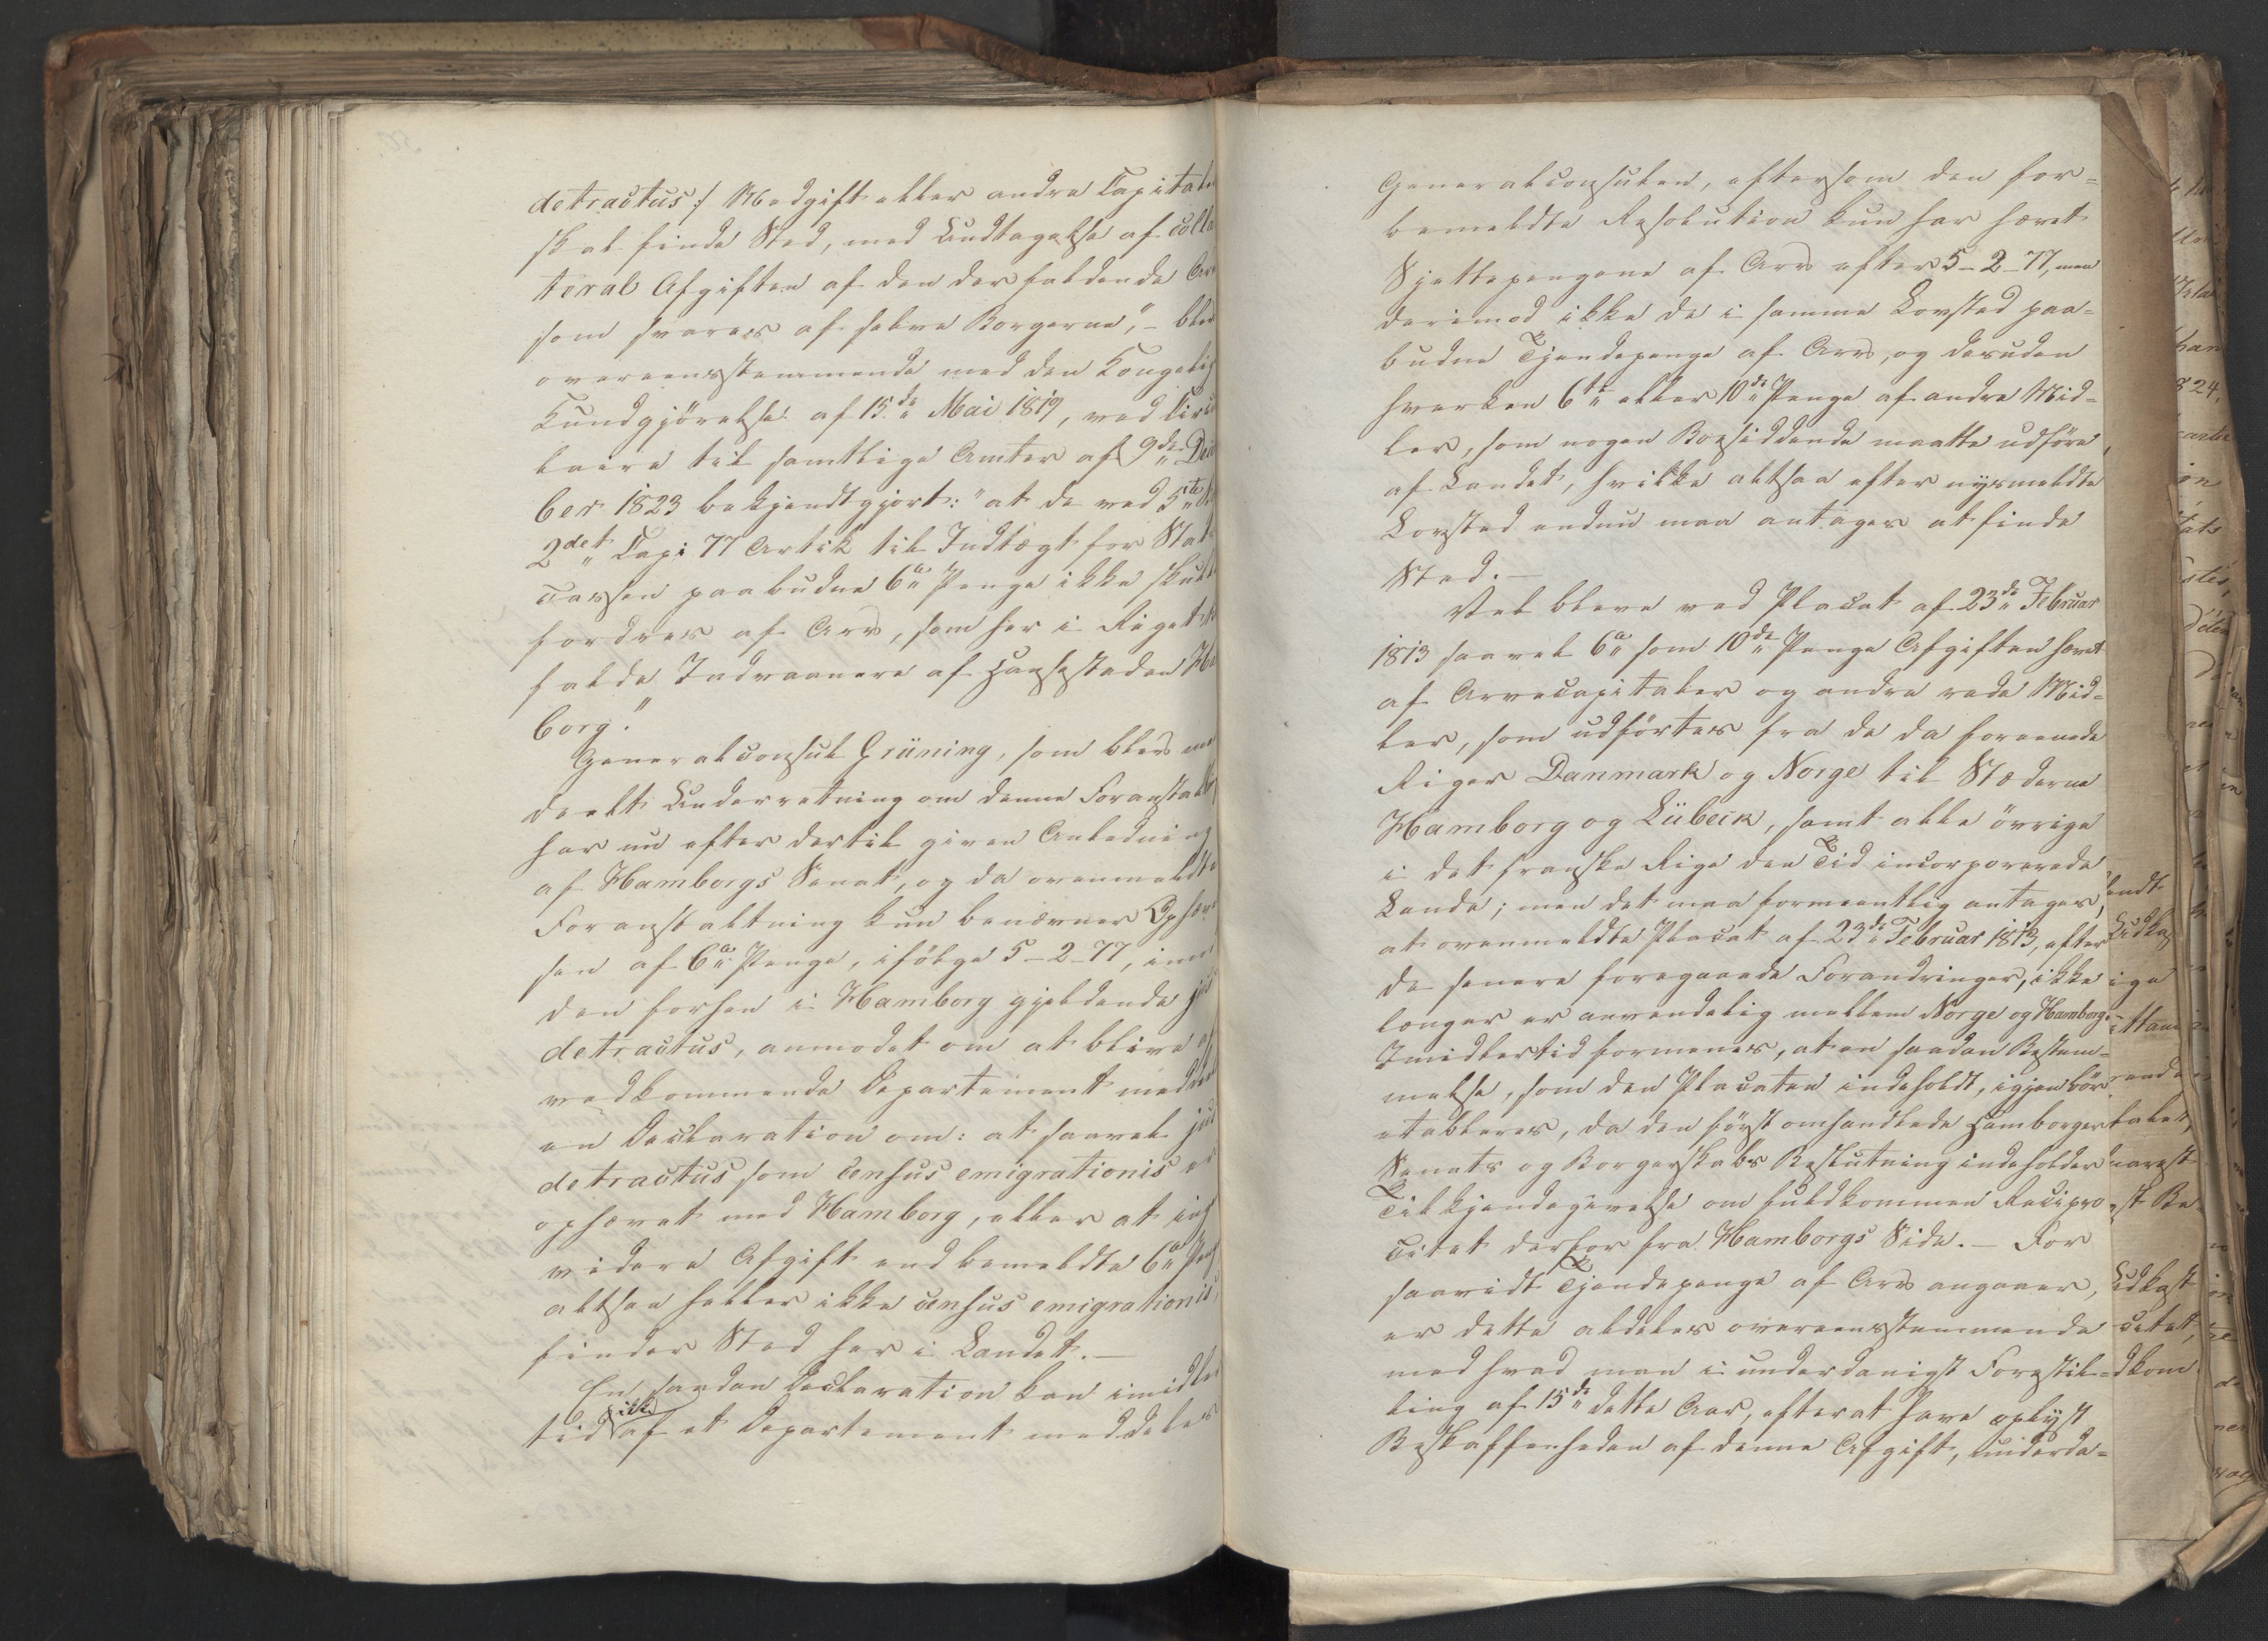 detractus :/ Medgift eller andre Capitaler
skal finde Sted, med Undtagelse af Colla
teral Afgiften af den der faldende Arv
som svares af selve Borgerne," – blev
overeensstemmende med den Kongelig
Kundgjørelse af 15de Mai 1819, ved Circu
laire til samtlige Amter af 9de Decem
ber 1823 bekjendtgjort: "at de ved 5te B
2det Capi 77 Artik til Indtægt for Stats
cassen paabudne 6te Penge ikke skulle
fordres af Arv, som her i Riget til
falde Indvaanere af Hansestaden Ham
borg."
Generalconsul Grüning, som blev med
deelt Underretning om denne Foranstaltn
har nu efter dertil given Anledning
af Hamborgs Senat, og da ovenmeldte
Foranstaltning kun benævner Ophævel
sen af 6te Penge, ifölge 5–2–77, imod
den forhen i Hamborg gjeldende jus
detractus, anmodet om at blive af
vedkommende Departement meddeelt
en Declaration om: at saavel jus
detractus som census emigrationis er
ophævet med Hamborg, eller at ing
videre Afgift end bemeldte 6te Peng
altsaa heller ikke census emigrationis,
finder Sted her i Landet. –
En saadan Declaration kan imidler
tid ikke af et Departement meddeles
Generalconsulen, eftersom den for-
bemeldte Resolution kun har hævet
Sjettepengene af Arv efter 5–2–77, men
derimod ikke de i samme Lovsted paa-
budne Tjendepenge af Arv, og desuden
hverken 6te eller 10de Penge af andre Mid-
ler, som nogen Boesiddende maatte udføre
af Landet, hvilke altsaa efter nysmeldte
Lovsted endnu maa antages at finde
Sted. –
Vel bleve ved Placat af 23de Februar
1813 saavel 6te som 10de Penge Afgiften hævet
af Arvecapitaler og andre rede Mid-
ler, som udførtes fra de da forenede
Riger Danmark og Norge til Stæderne
Hamborg og Lübeck, samt alle övrige
i det franske Rige den Tid incorporerede
Lande; men det maa formeentlig antages,
at ovenmeldte Placat af 23de Februar 1813, efter
de senere foregaaede Forandringer, ikke
længer er anvendelig mellem Norge og Hamborg. –
Imidlertid formenes, at en saadan Bestem-
melse, som den Placaten indeholdt, igjen bör
etableres, da den først omhandlede Hamborger
Senats og Borgerskabs Beslutning indeholder
Tilkjendegivelse om fuldkommen Recipro-
citet derfor fra Hamborgs Side. – For
saavidt Tjendepenge af Arv angaaer,
er dette aldeles overeensstemmende
med hvad man i underdanigst Forestil-
ling af 15de dette Aar, efterat have oplyst
Beskaffenheden af denne Afgift, underda-